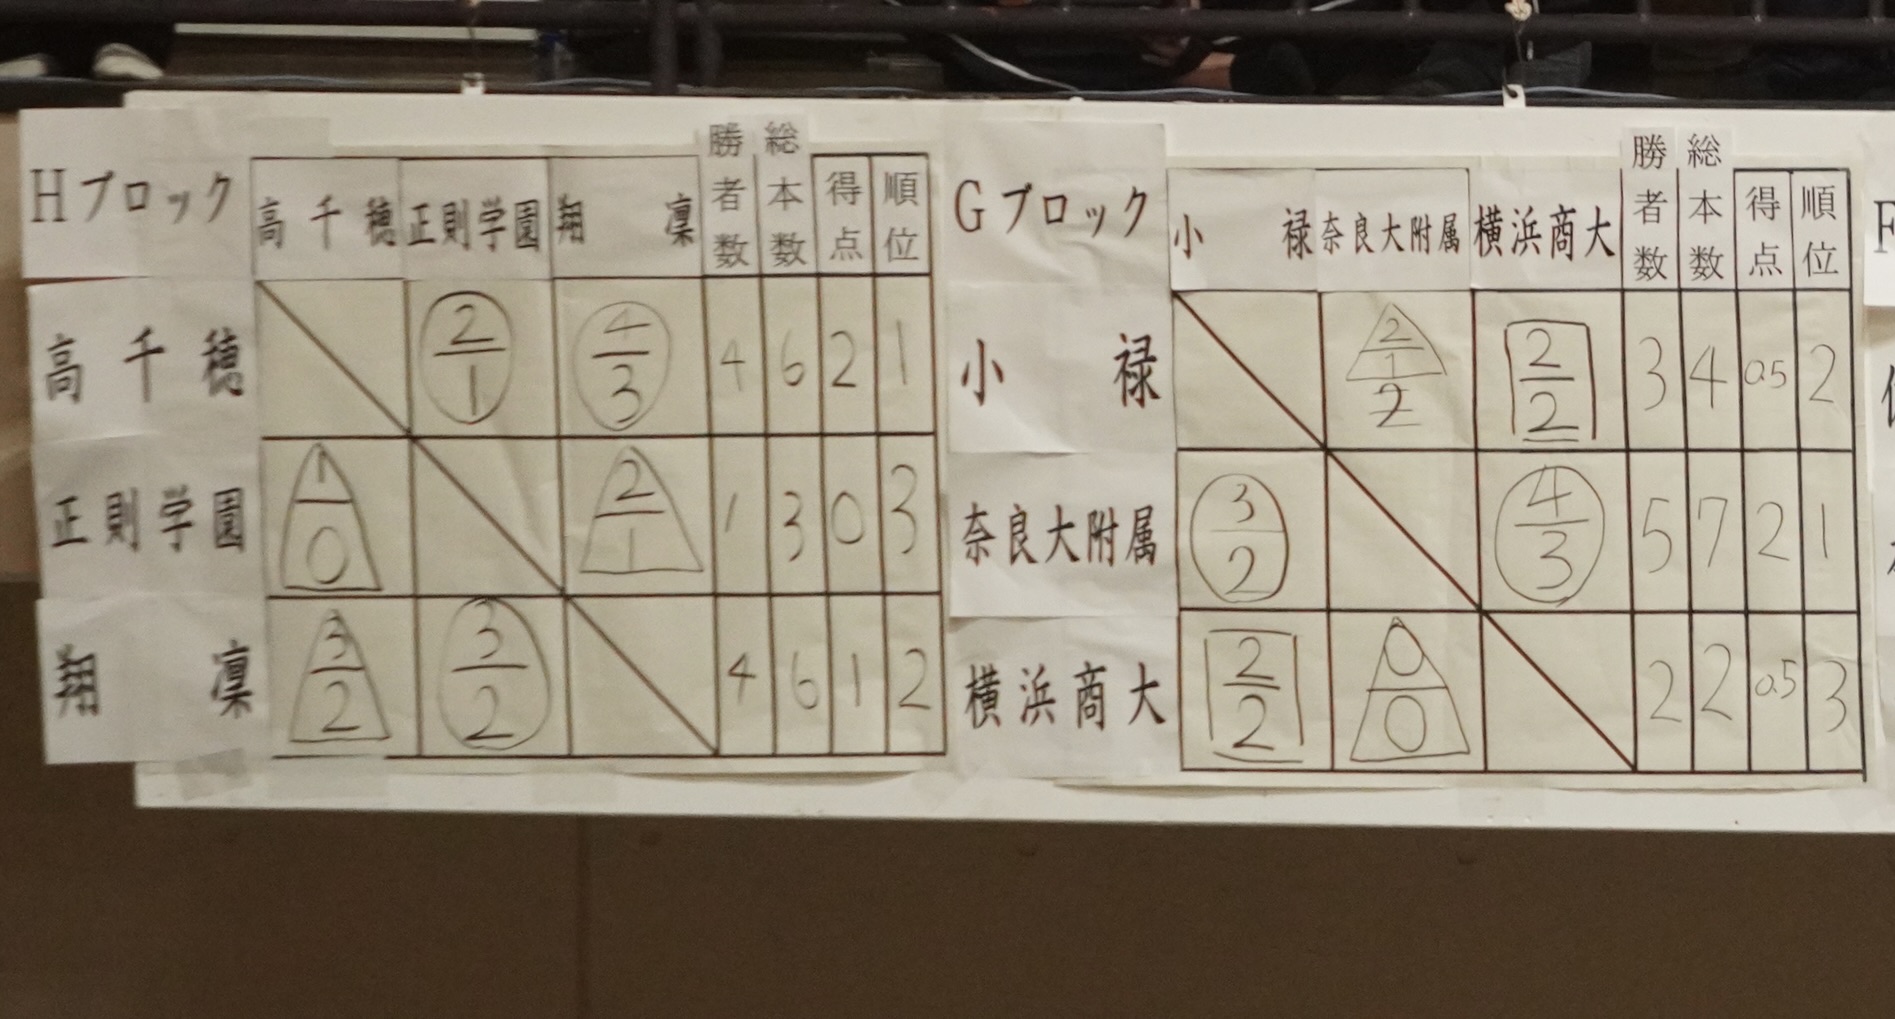 Hブロック 高千穂 正則学園 翔凜 勝者数 総本数 得点 順位
高千穂 2/1 4/3 4 6 2 1
正則学園 1/0 2/1 1 3 0 3
翔凜 3/2 3/2 4 6 1 2
Gブロック 小禄 奈良大附属 横浜商大 勝者数 総本数 得点 順位
小禄 2/1 2/2 3 4 0.5 2
奈良大附属 3/2 4/3 5 7 2 1
横浜商大 2/2 0/0 2 2 0.5 3